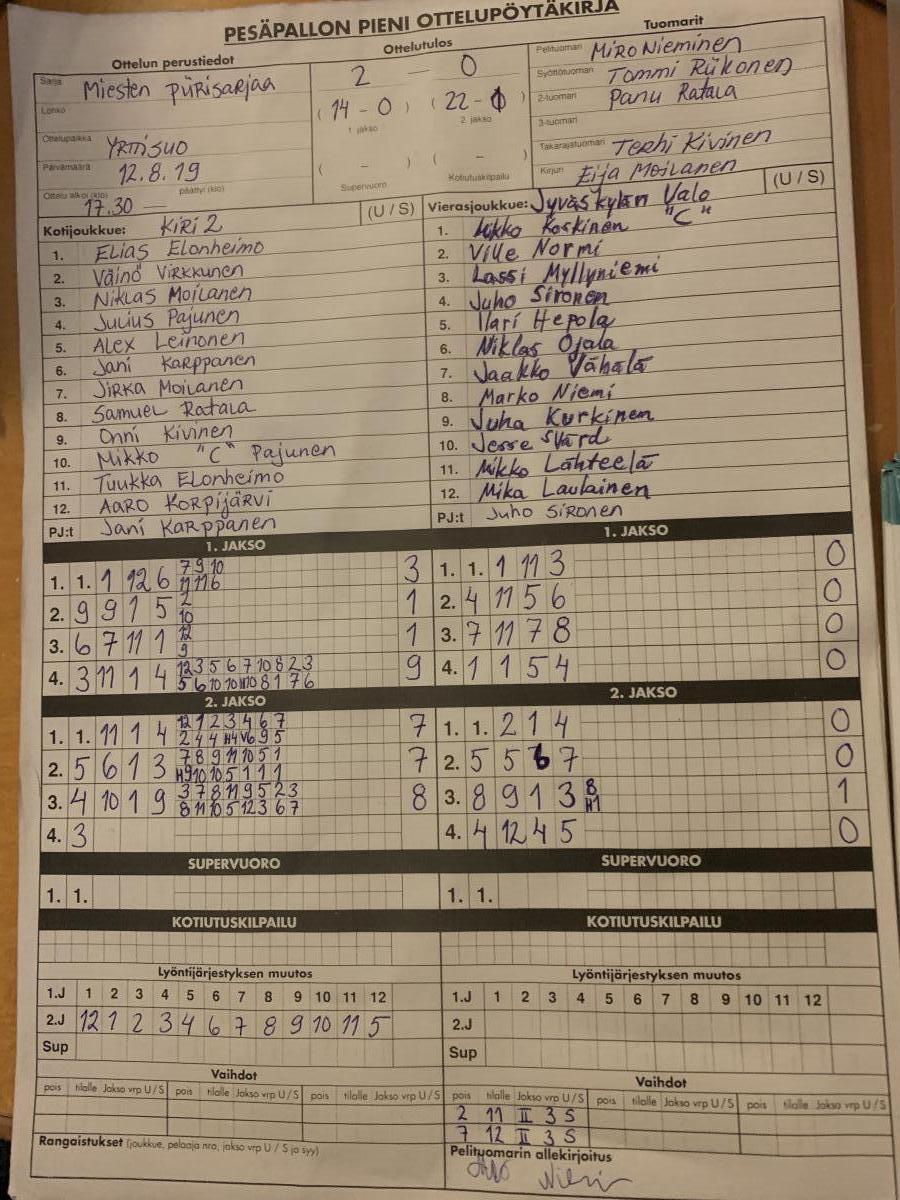 PESÄPALLON PIENI OTTELUPÖYTÄKIRJA
Ottelun perustiedot
Ottelutulos
Tuomarit
Sarja Miesten piirisarjaa
Lohko
Ottelupaikka Yrttisuo
Päivämäärä 12.8.19
Ottelu alkoi (klo) 17.30 — päättyi (klo)
2 — 0
(14 - 0) (22 - 1)
1. jakso 2. jakso
( - ) ( - )
Supervuoro Kotiutuskilpailu
Pelituomari Miro Nieminen
Syöttötuomari Tommi Riikonen
2-tuomari Panu Ratala
3-tuomari
Takarajatuomari Terhi Kivinen
Kirjuri Eija Moilanen
Kotijoukkue: KiRi 2 (U / S)
1. Elias Elonheimo
2. Väinö Virkkunen
3. Niklas Moilanen
4. Julius Pajunen
5. Alex Leinonen
6. Jani Karppanen
7. Jirka Moilanen
8. Samuel Ratala
9. Onni Kivinen
10. Mikko "C" Pajunen
11. Tuukka Elonheimo
12. Aaro Korpijärvi
PJ:t Jani Karppanen
Vierasjoukkue: Jyväskylän Valo (U / S)
1. Mikko Koskinen "C"
2. Ville Normi
3. Lassi Myllyniemi
4. Juho Sironen
5. Ilari Hepola
6. Niklas Ojala
7. Jaakko Vähälä
8. Marko Niemi
9. Juha Kurkinen
10. Jesse Svärd
11. Mikko Lähteelä
12. Mika Laulainen
PJ:t Juho Sironen
1. JAKSO
1. 1. 1 12 6 7 9 10 3
11 11 6
2. 9 9 1 5 2 1
10
3. 6 7 11 1 12 1
9
4. 3 11 1 4 12 3 5 6 7 10 8 2 3 9
5 6 10 10 H10 8 1 7 6
1. JAKSO
1. 1. 1 11 3 0
2. 4 11 5 6 0
3. 7 11 7 8 0
4. 1 1 5 4 0
2. JAKSO
1. 1. 11 1 4 12 1 2 3 4 6 7 7
2 4 4 H4 V6 9 5
2. 5 6 1 3 7 8 9 11 10 5 1 7
H9 10 10 5 1 1 1
3. 4 10 1 9 3 7 8 11 9 5 2 3 8
8 11 10 5 12 3 6 7
4. 3
2. JAKSO
1. 1. 2 1 4 0
2. 5 5 6 7 0
3. 8 9 1 3 8 1
H1
4. 4 12 4 5 0
SUPERVUORO
1. 1.
SUPERVUORO
1. 1.
KOTIUTUSKILPAILU
KOTIUTUSKILPAILU
Lyöntijärjestyksen muutos
1.J 1 2 3 4 5 6 7 8 9 10 11 12
2.J 12 1 2 3 4 6 7 8 9 10 11 5
Sup
Lyöntijärjestyksen muutos
1.J 1 2 3 4 5 6 7 8 9 10 11 12
2.J
Sup
Vaihdot
pois tilalle Jakso vrp U / S pois tilalle Jakso vrp U / S pois tilalle Jakso vrp U / S
Vaihdot
pois tilalle Jakso vrp U / S pois tilalle Jakso vrp U / S pois tilalle Jakso vrp U / S
2 11 II 3 S
7 12 II 3 S
Rangaistukset (joukkue, pelaaja nro, jakso vrp U / S ja syy)
Pelituomarin allekirjoitus